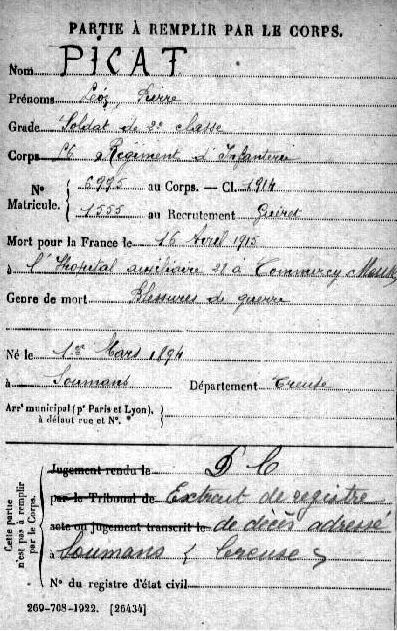 PARTIE À REMPLIR PAR LE CORPS.
Nom PICAT
Prénoms Pierre
Grade Soldat de 2e classe
Corps Régiment d'Infanterie
N° 6995 au Corps. — Cl. 1914
Matricule. 1555 au Recrutement Guéret
Mort pour la France le 16 Avril 1915
à l'Hopital auxiliaire 21 à Commercy
Genre de mort Blessures de guerre
Né le 1er Mars 1894
à Soumans Département Creuse
Arrt municipal (pr Paris et Lyon),
à défaut rue et N°.
Cette partie
n'est pas à remplir
par le Corps.
Jugement rendu le D C
par le Tribunal de Extrait de registre
acte ou jugement transcrit le de décès adressé
à Soumans (Creuse)
N° du registre d'état civil
269-708-1922. [26434]